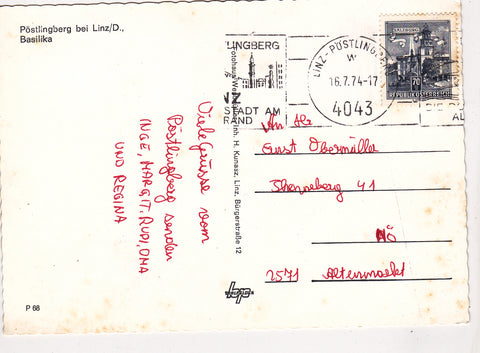 Pöstlingberg bei Linz/D.,
Basilika
Viele Grüsse vom
Pöstlingberg senden
INGE, MARGIT, RUDI, OMA
UND REGINA
P 68
H. Kunasz, Linz, Bürgerstraße 12
LINGBERG
STADT AM
RAND
LINZ-PÖSTLINGBERG
16.7.74-17
4043
SALZBURG
70
REPUBLIK ÖSTERREICH
An
Ernst Obermüller
41
NÖ
2571 Altenmarkt